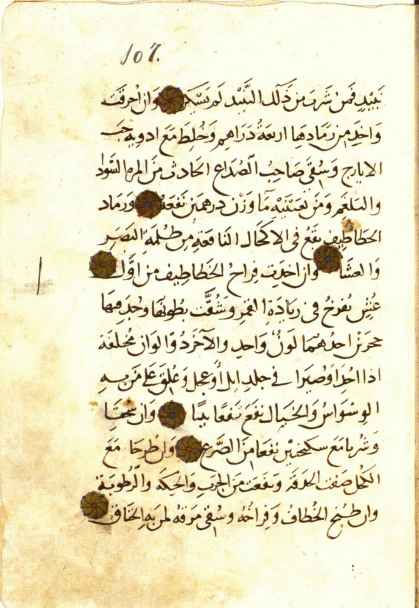 107.
نبيذ فمن شرب من ذلك النبيذ لم يسكر وان احرقت
واخذ من رمادها اربعة دراهم وخلط مع ادوية حب
الايارج وسقي صاحب الصداع الحادث من المره السودا
والبلغم ومن نسنتيه ما وزن درهمين نفعه ورماد
الخطاطيف يقع في الاكحال النافعة من ظلمة البصر
والعشا وان اخذت فراخ الخطاطيف من اول
عش يفرخ في زيادة القمر وشقت بطونها وجد فيها
حجرين احدهما لون واحد والآخر ذو الوان مختلفة
اذا اخذا وصيرا في جلد ابل او عجل وعلق على من به
الوسواس والخيال نفع نفعا بينا وان سحقتا
وشربا مع سكنجبين نفعا من الصرع وان طرحا مع
الكحل صفت الحدقة ونفعت من الجرب والحكة والرطوبة
وان طبخ الخطاف وفراخه وسقي مرقه لمن به الخناق